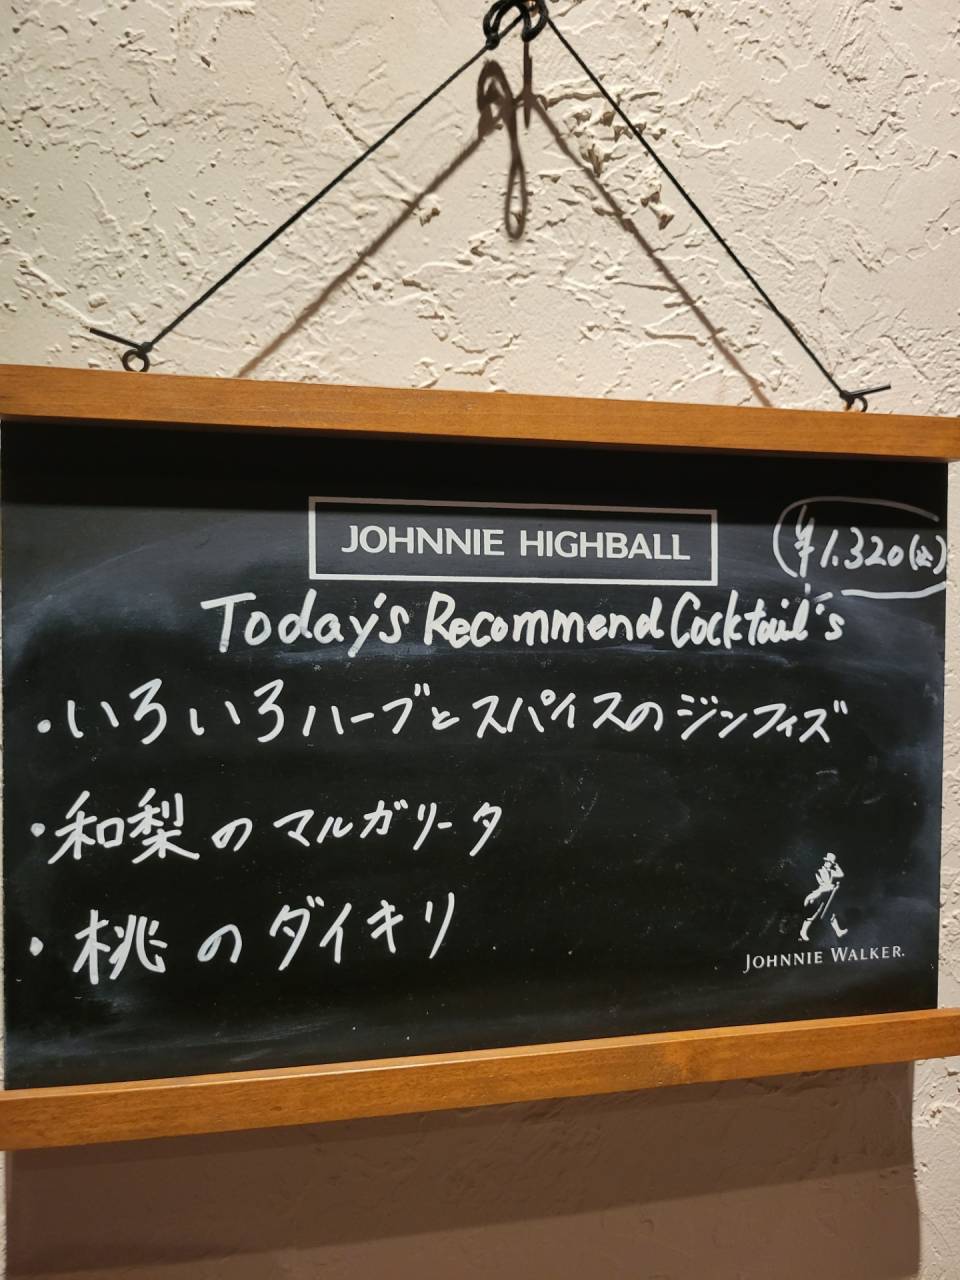 JOHNNIE HIGHBALL
¥1.320(込)
Today's Recommend Cocktail's
・いろいろハーブとスパイスのジンフィズ
・和梨のマルガリータ
・桃のダイキリ
JOHNNIE WALKER.